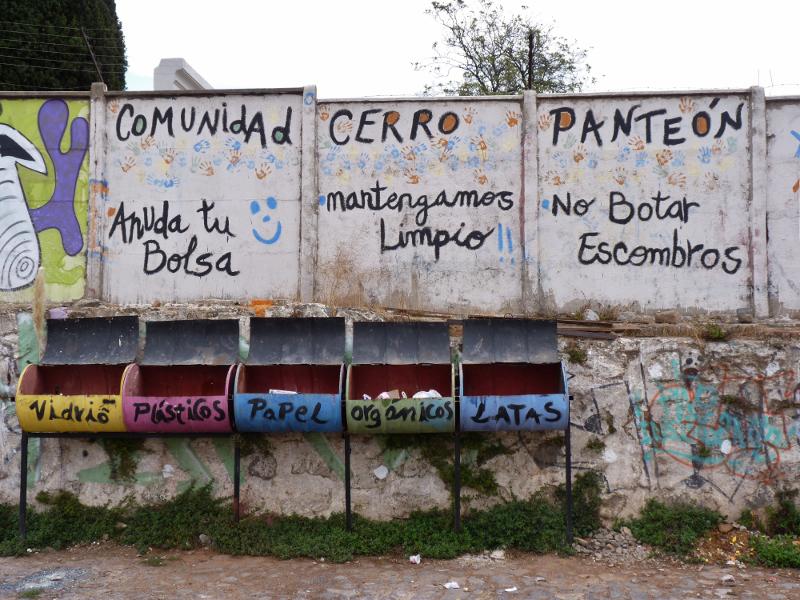 COMUNIdAd CERRO PANTEÓN
Anuda tu
Bolsa
mantengamos
Limpio!!
No Botar
Escombros
Vidrió
Plásticos
PaPeL
orgánicos
LATAS